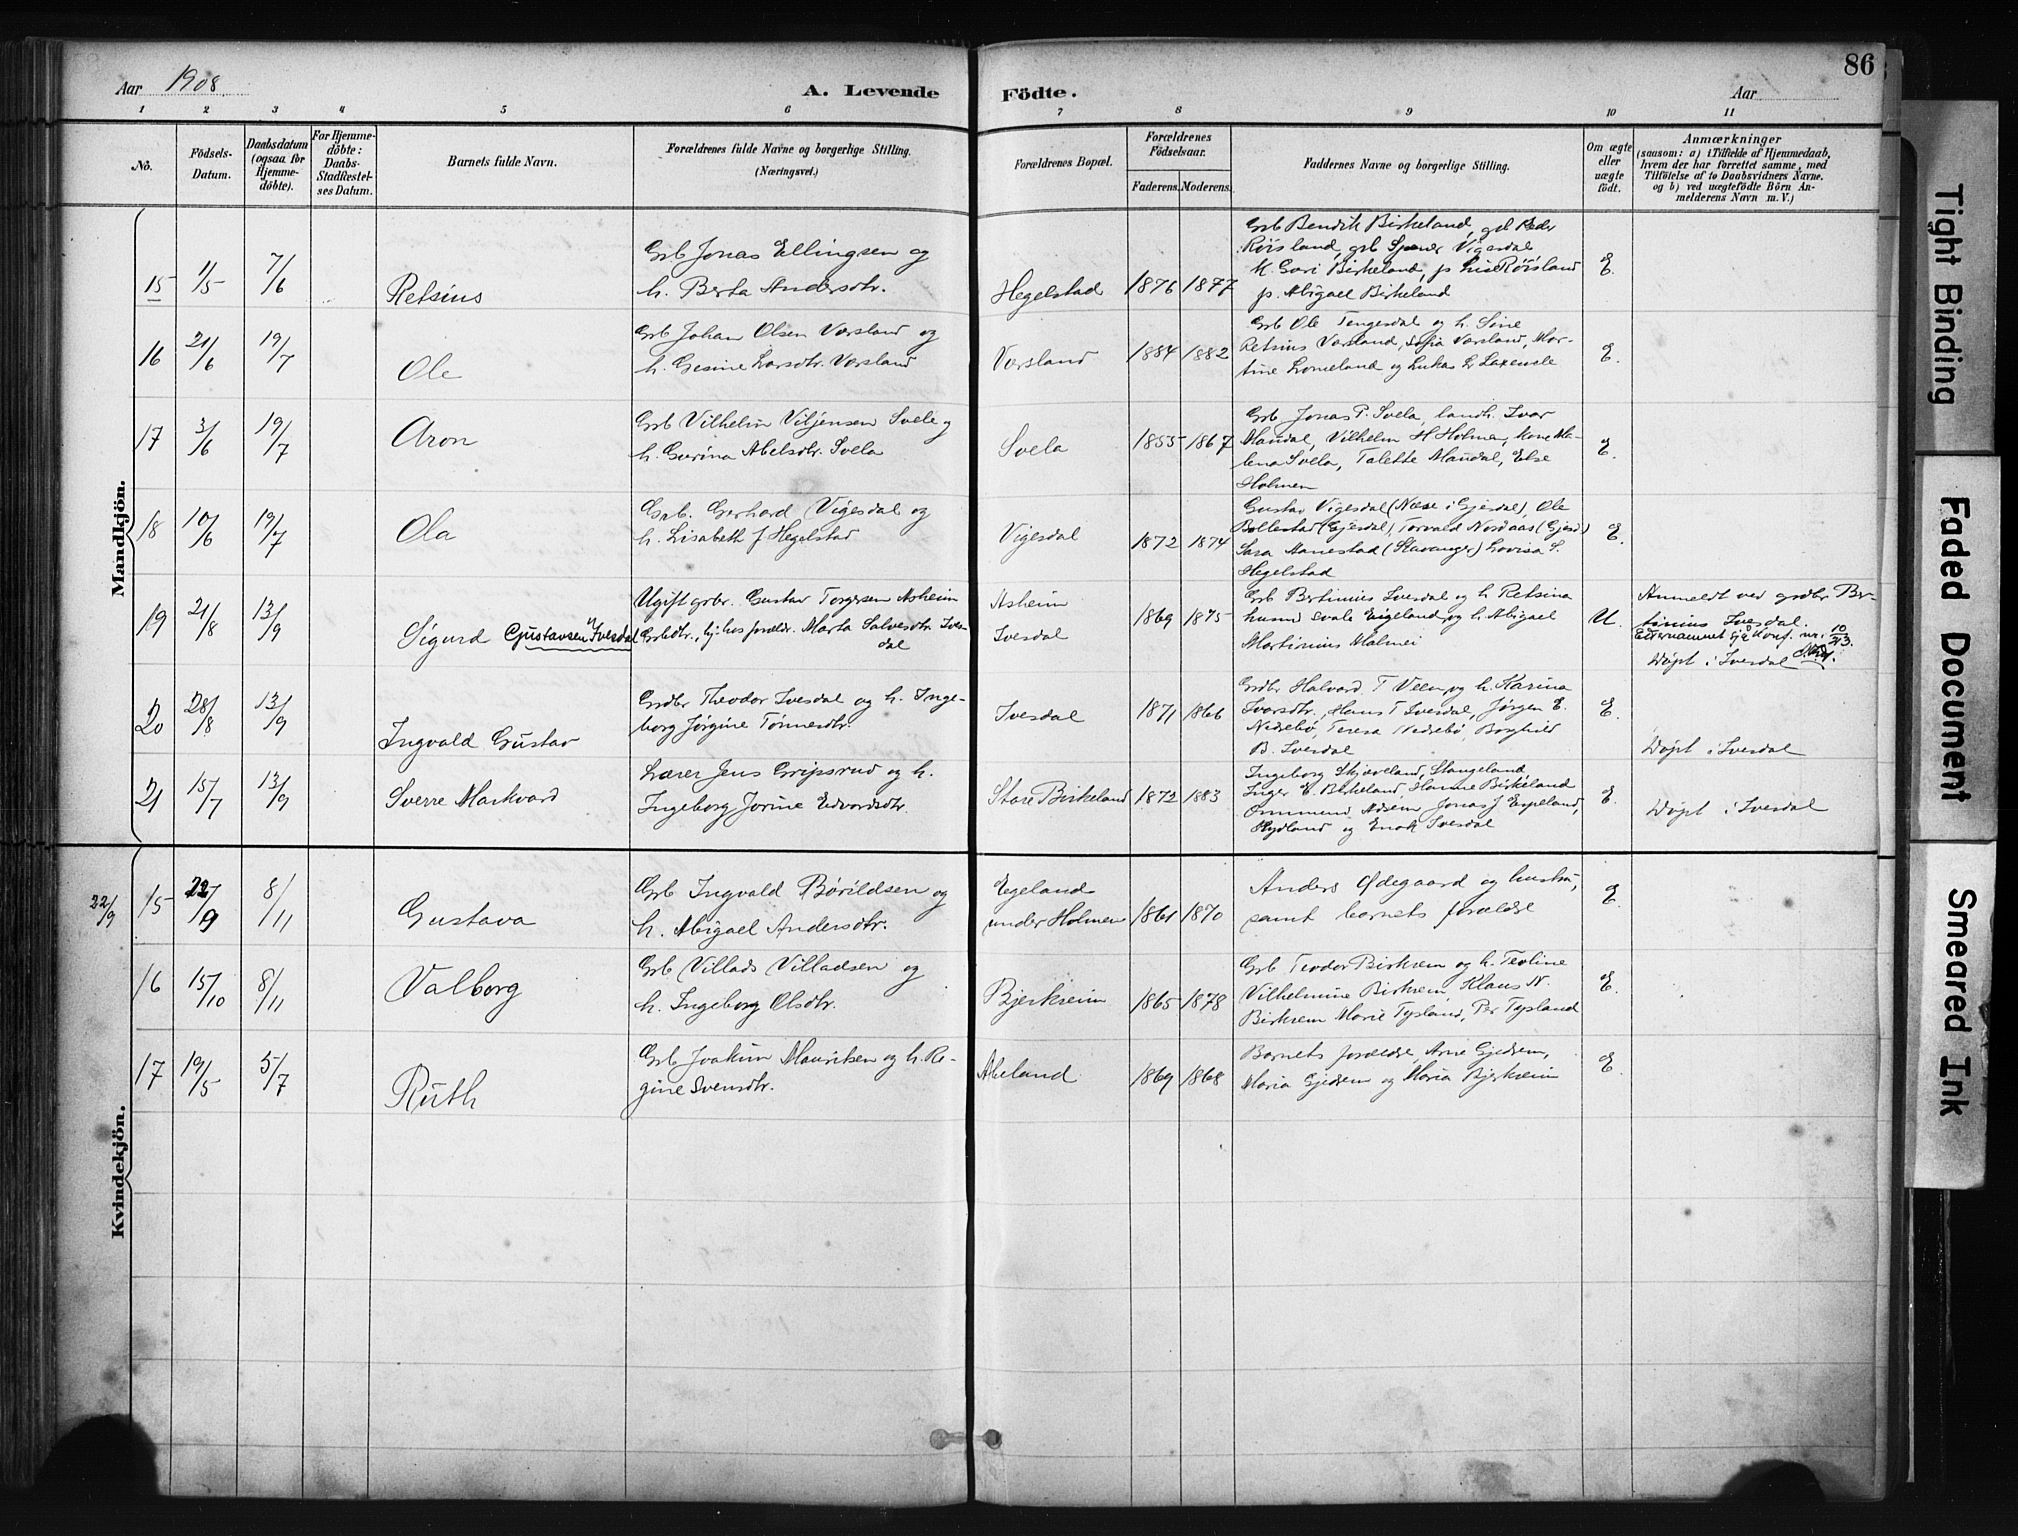 86
Aar 1908. A. Levende Födte. Aar
1 2 3 4 5 6 7 8 9 10 11
No.
Födsels-
Datum.
Daabsdatum
(ogsaa for
Hjemme-
döbte).
For Hjemme-
döbte:
Daabs-
Stadfæstel-
ses Datum.
Barnets fulde Navn.
Forældrenes fulde Navne og borgerlige Stilling.
(Næringsvei.)
Forældrenes Bopæl.
Forældrenes
Födselsaar.
Faderens. Moderens.
Faddernes Navne og borgerlige Stilling.
Om ægte
eller
uægte
födt.
Anmærkninger
(saasom: a) i Tilfælde af Hjemmedaab,
hvem der har forrettet samme, med
Tilföielse af to Daabsvidners Navne.
og b) ved uægtefödte Börn An-
melderens Navn m. V.)
Mandkjön.
15 1/5 7/6 Retsius
Grb Jonas Ellingsen og
h. Berta Andersdtr.
Hegelstad 1876 1877
Grb Bendik Birkeland, gd Peder
Röisland, grb Vigesdal
K. Gori Birkeland, p. Lise Röisland
p. Abigael Birkeland
E.
16 21/6 19/7 Ole
Grb Johan Olsen Versland og
h. Gesine Larsdtr. Versland
Versland 1884 1882
Grb Ole Tengesdal og h. Sine
Retsius Versland, Sofia Versland, Mar-
tine Lomeland og Lukas
E.
17 3/6 19/7 Aron
Grb Vilhelm Viljensen Svele og
h. Gurina Abelsdtr. Svela
Svela 1855 1867
Grb Jonas P. Svela, landh. Ivar
Maudal, Vilhelm H Holmen, Kone Ma-
lena Svela, Talette Maudal, Else
Holmen
E.
18 10/6 19/7 Ola
Grb. Gerhard Vigesdal og
h. Lisabeth f Hegelstad
Vigesdal 1872 1874
Gustav Vigesdal (Næse i Gjesdal), Ole
Bollestad (Gjesdal), Torvald Nordaas (Gjesd)
Sara Manestad (Stavanger) Lovisa S.
Hegelstad
E.
19 21/8 13/9 Sigurd Gjustavsen Ivesdal
Ugift grbr. Gustav Torgersen Asheim
Grbdtr., hj. hos forældr. Marta Salvesdtr. Ives-
dal
Asheim
Ivesdal
1869 1875
Grb Bertinius Ivesdal og h. Retsina
husm Svale Eigeland og h. Abigael
Martinius Malmei
U.
Anmeldt ved grdbr Ber-
tinius Ivesdal.
Efternavnet Konf. nr. 10/23.
Döpt i Ivesdal
20 28/8 13/9 Ingvald Gustav
Grdbr Theodor Ivesdal og h. Inge-
borg Jörgine Tönnesdtr.
Ivesdal 1871 1866
Grdbr Halvard T Veen og h. Karina
Ivarsdtr., Hans T Ivesdal, Jörgen E.
Nedrebö, Teresa Nedrebö, Borghild
B. Ivesdal
E.
Döpt i Ivesdal
21 15/7 13/9 Sverre Markvard
Lærer Jens Gripsrud og h.
Ingeborg Jorine Edvardsdtr.
Store Birkeland 1872 1883
Ingeborg Skjæveland, Stangeland
Inger E. Birkeland, Hanne Birkeland
Ommund Adsem, Jonas J Espeland,
Rydland og Enok Ivesdal
E.
Döpt i Ivesdal
Kvindekjön.
22/9 15 22/9 8/11 Gustava
Grb Ingvald Börildsen og
h. Abigael Andersdtr.
Eegeland
under Holmen
1861 1870
Anders Ødegaard og hustru,
samt barnets forældre
E.
16 15/10 8/11 Valborg
Grb Villads Villadsen og
h. Ingeborg Olsdtr.
Bjerkreim 1865 1878
Grb Teodor Birkrem og h. Teoline
Vilhelmine Birkrem, Klaus N.
Birkrem Marie Tysland, Per Tysland
E.
17 19/5 5/7 Ruth
Grb Joakim Mauritsen og h. Re-
gine Svensdtr.
Abeland 1869 1868
Barnets forældre, Arne Gjedrem,
Maria Gjedrem og Maria Bjerkreim
E.
Tight Binding
Faded Document
Smeared Ink